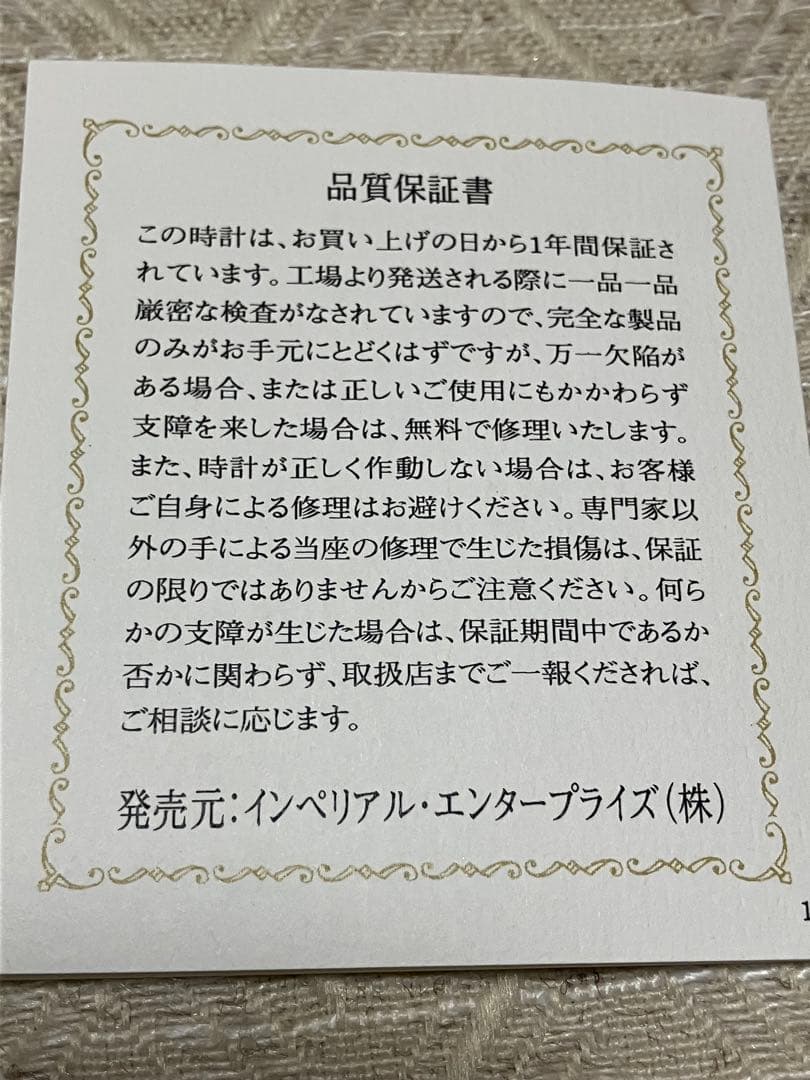 品質保証書
この時計は、お買い上げの日から1年間保証さ
れています。工場より発送される際に一品一品
厳密な検査がなされていますので、完全な製品
のみがお手元にとどくはずですが、万一欠陥が
ある場合、または正しいご使用にもかかわらず
支障を来した場合は、無料で修理いたします。
また、時計が正しく作動しない場合は、お客様
ご自身による修理はお避けください。専門家以
外の手による当座の修理で生じた損傷は、保証
の限りではありませんからご注意ください。何ら
かの支障が生じた場合は、保証期間中であるか
否かに関わらず、取扱店までご一報くだされば、
ご相談に応じます。
発売元：インペリアル・エンタープライズ（株）
1